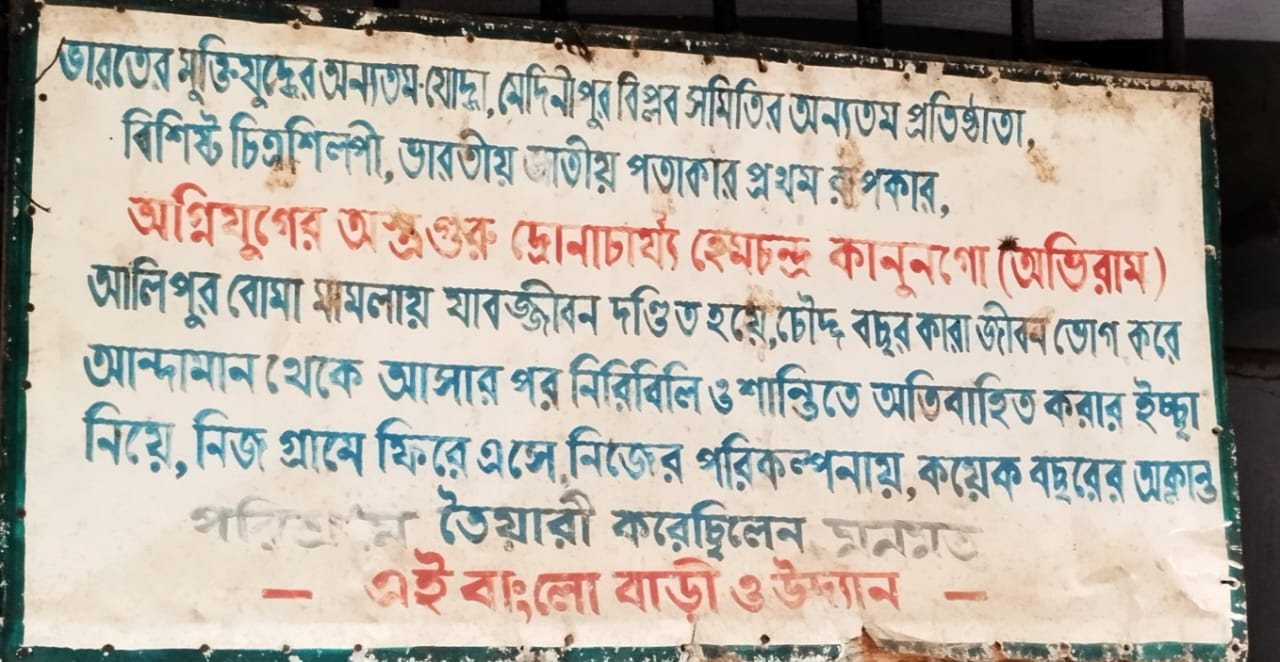 ভারতের মুক্তিযুদ্ধের অন্যতম যোদ্ধা, মেদিনীপুর বিপ্লব সমিতির অন্যতম প্রতিষ্ঠাতা,
বিশিষ্ট চিত্রশিল্পী, ভারতীয় জাতীয় পতাকার প্রথম রূপকার,
অগ্নিযুগের অস্ত্রগুরু দ্রোনাচার্য্য হেমচন্দ্র কানুনগো (অভিরাম)
আলিপুর বোমা মামলায় যাবজ্জীবন দণ্ডিত হয়ে, চৌদ্দ বছর কারা জীবন ভোগ করে
আন্দামান থেকে আসার পর নিরিবিলি ও শান্তিতে অতিবাহিত করার ইচ্ছা
নিয়ে, নিজ গ্রামে ফিরে এসে, নিজের পরিকল্পনায়, কয়েক বছরের অক্লান্ত
পরিশ্রমে তৈয়ারী করেছিলেন মনমত
— এই বাংলো বাড়ী ও উদ্যান —